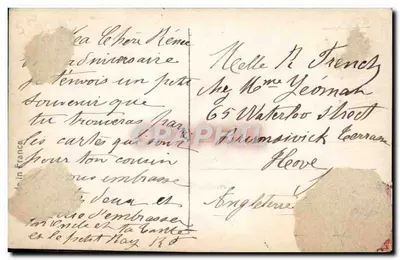 Ma Chère Renée
anniversaire
je t'envois un petit
souvenir que
tu trouveras par
les cartes que sont
pour ton cousin
vous embrasse
deux et
d'embrasser
ton oncle et ta tante
et le petit Ray
Melle R French
chez Mme Yeoman
65 Waterloo Street
Brunswick Terrace
Hove
Angleterre
Made in France